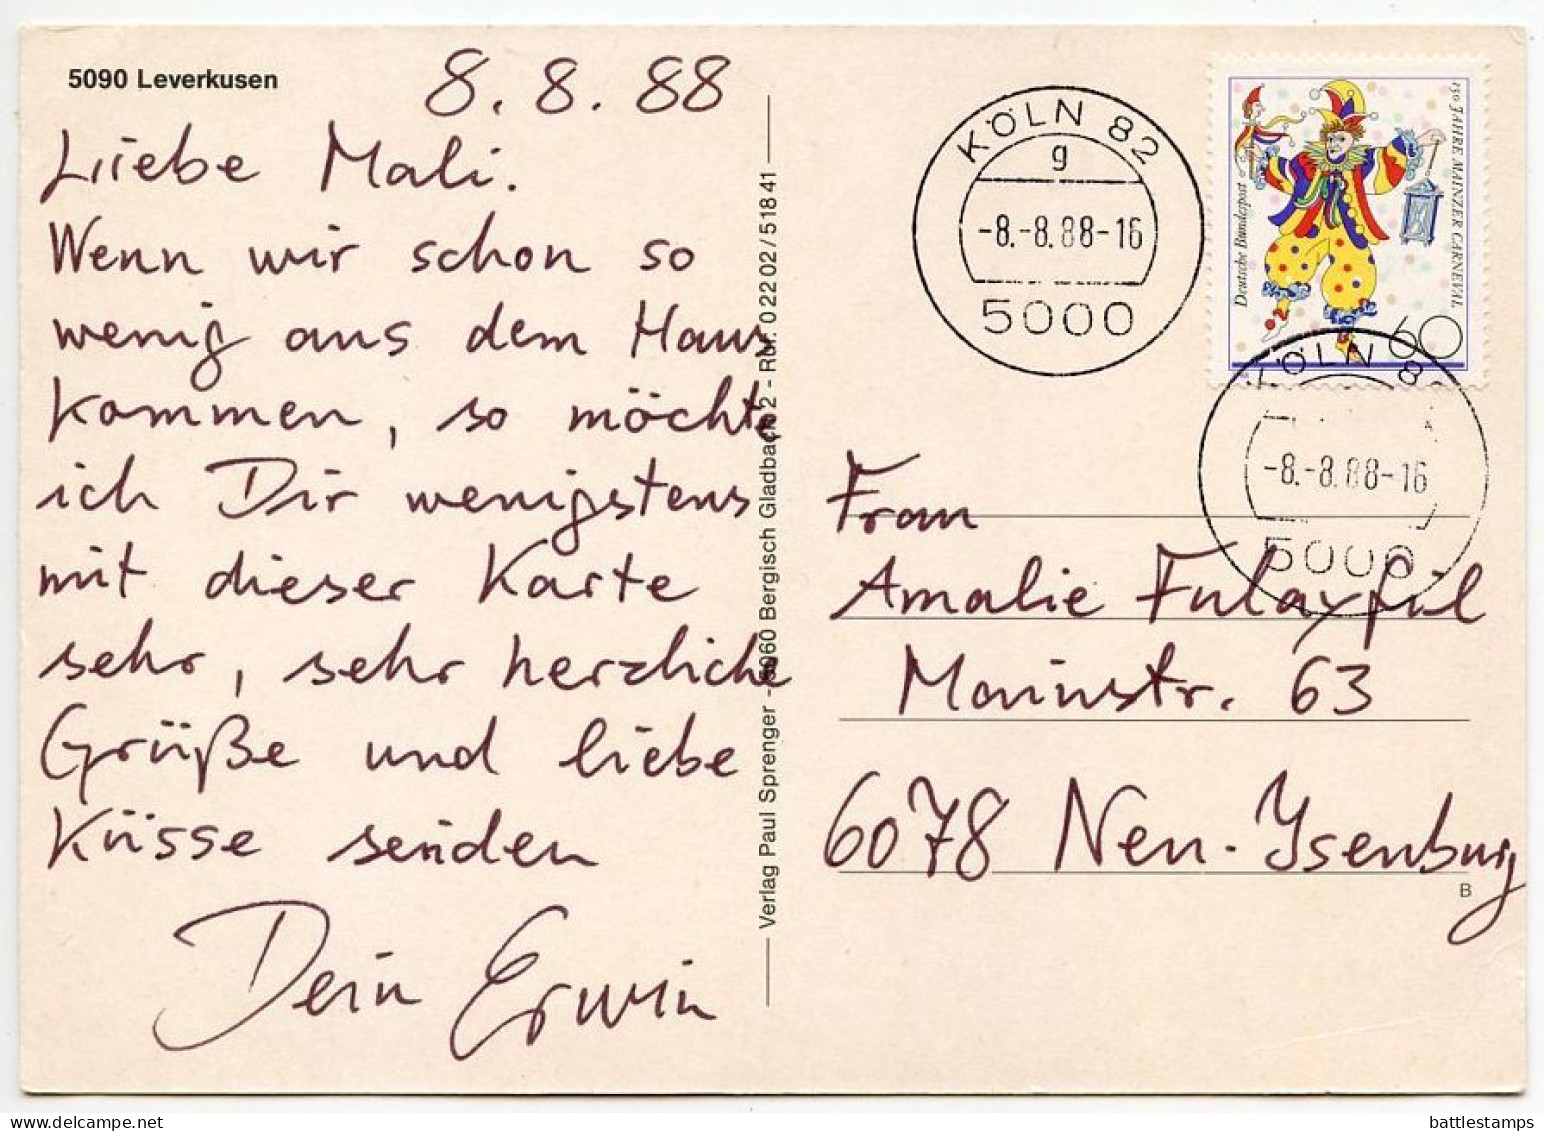 5090 Leverkusen
8. 8. 88
Liebe Mali.
Wenn wir schon so
wenig aus dem Haus
kommen, so möchte
ich Dir wenigstens
mit dieser Karte
sehr, sehr herzliche
Grüße und liebe
Küsse senden
Dein Erwin
Verlag Paul Sprenger - 5060 Bergisch Gladbach 2 - Ruf. 0 22 02 / 5 18 41
KÖLN 82
g
-8.-8.88-16
5000
Deutsche Bundespost
150 JAHRE MAINZER CARNEVAL
60
KÖLN 8
-8.-8.88-16
5000
Frau
Amalie
Mainstr. 63
6078 Neu-Ysenburg
B
battlestamps